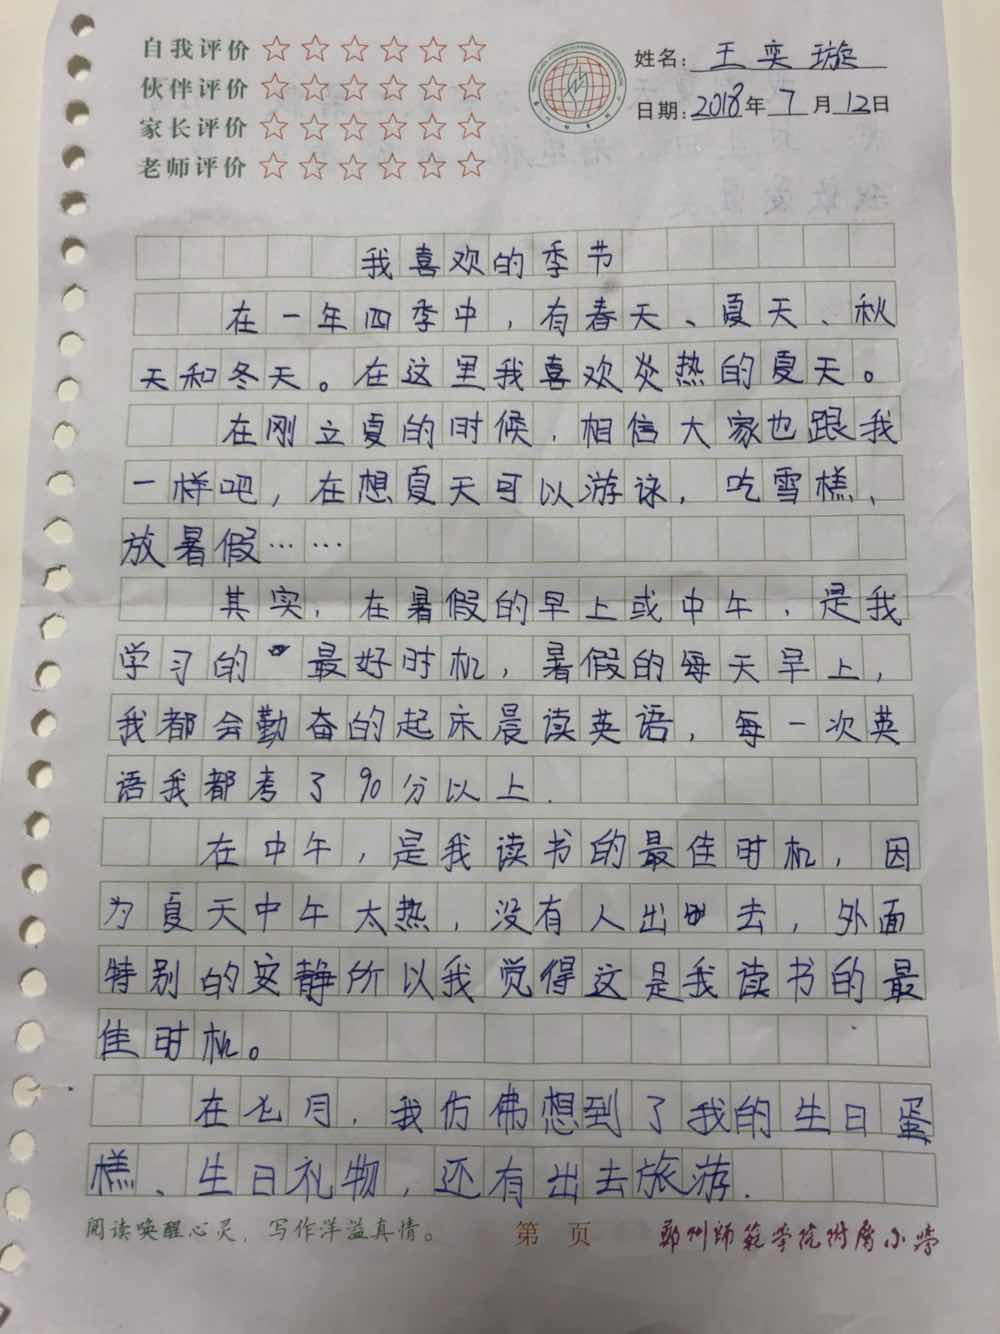 自我评价 ☆☆☆☆☆☆
伙伴评价 ☆☆☆☆☆☆
家长评价 ☆☆☆☆☆☆
老师评价 ☆☆☆☆☆☆
姓名：王奕璇
日期：2018年7月12日
我喜欢的季节
在一年四季中，有春天、夏天、秋
天和冬天。在这里我喜欢炎热的夏天。
在刚立夏的时候，相信大家也跟我
一样吧，在想夏天可以游泳，吃雪糕、
放暑假……
其实，在暑假的早上或中午，是我
学习的最好时机，暑假的每天早上，
我都会勤奋的起床晨读英语，每一次英
语我都考了90分以上.
在中午，是我读书的最佳时机，因
为夏天中午太热，没有人出去，外面
特别的安静所以我觉得这是我读书的最
佳时机。
在七月，我仿佛想到了我的生日蛋
糕、生日礼物，还有出去旅游.
阅读唤醒心灵，写作洋溢真情。
第 页
郑州师范学院附属小学